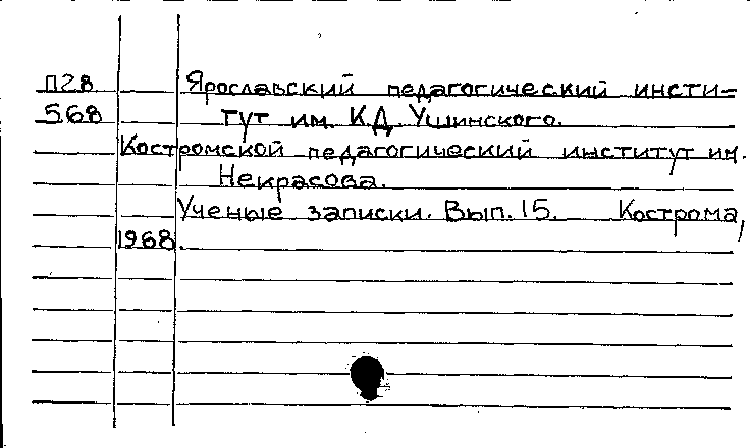 П28 Ярославский педагогический инсти-
568 тут им. К.Д. Ушинского.
Костромской педагогический институт им.
Некрасова.
Ученые записки. Вып. 15. Кострома,
1968.